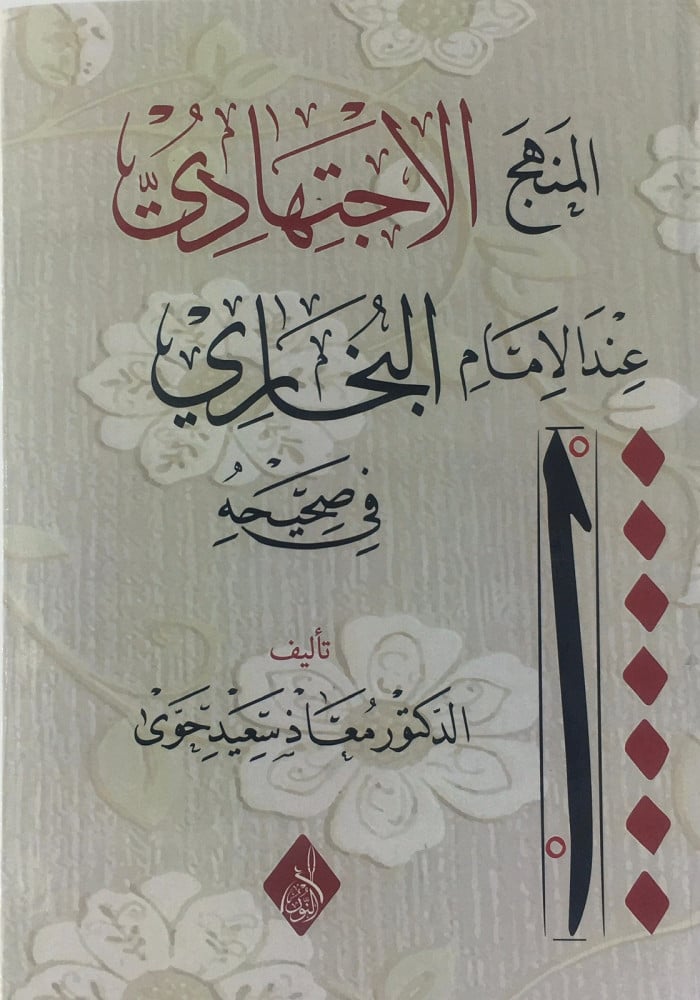 المَنهَجَ الاجْتِهَادِيّ
عِنْدَ الإِمَامِ البُخَارِي
فِي صَحِيْحِهِ
تأليف
الدكتور مُعَاذ سَعِيد حَوّى
النور